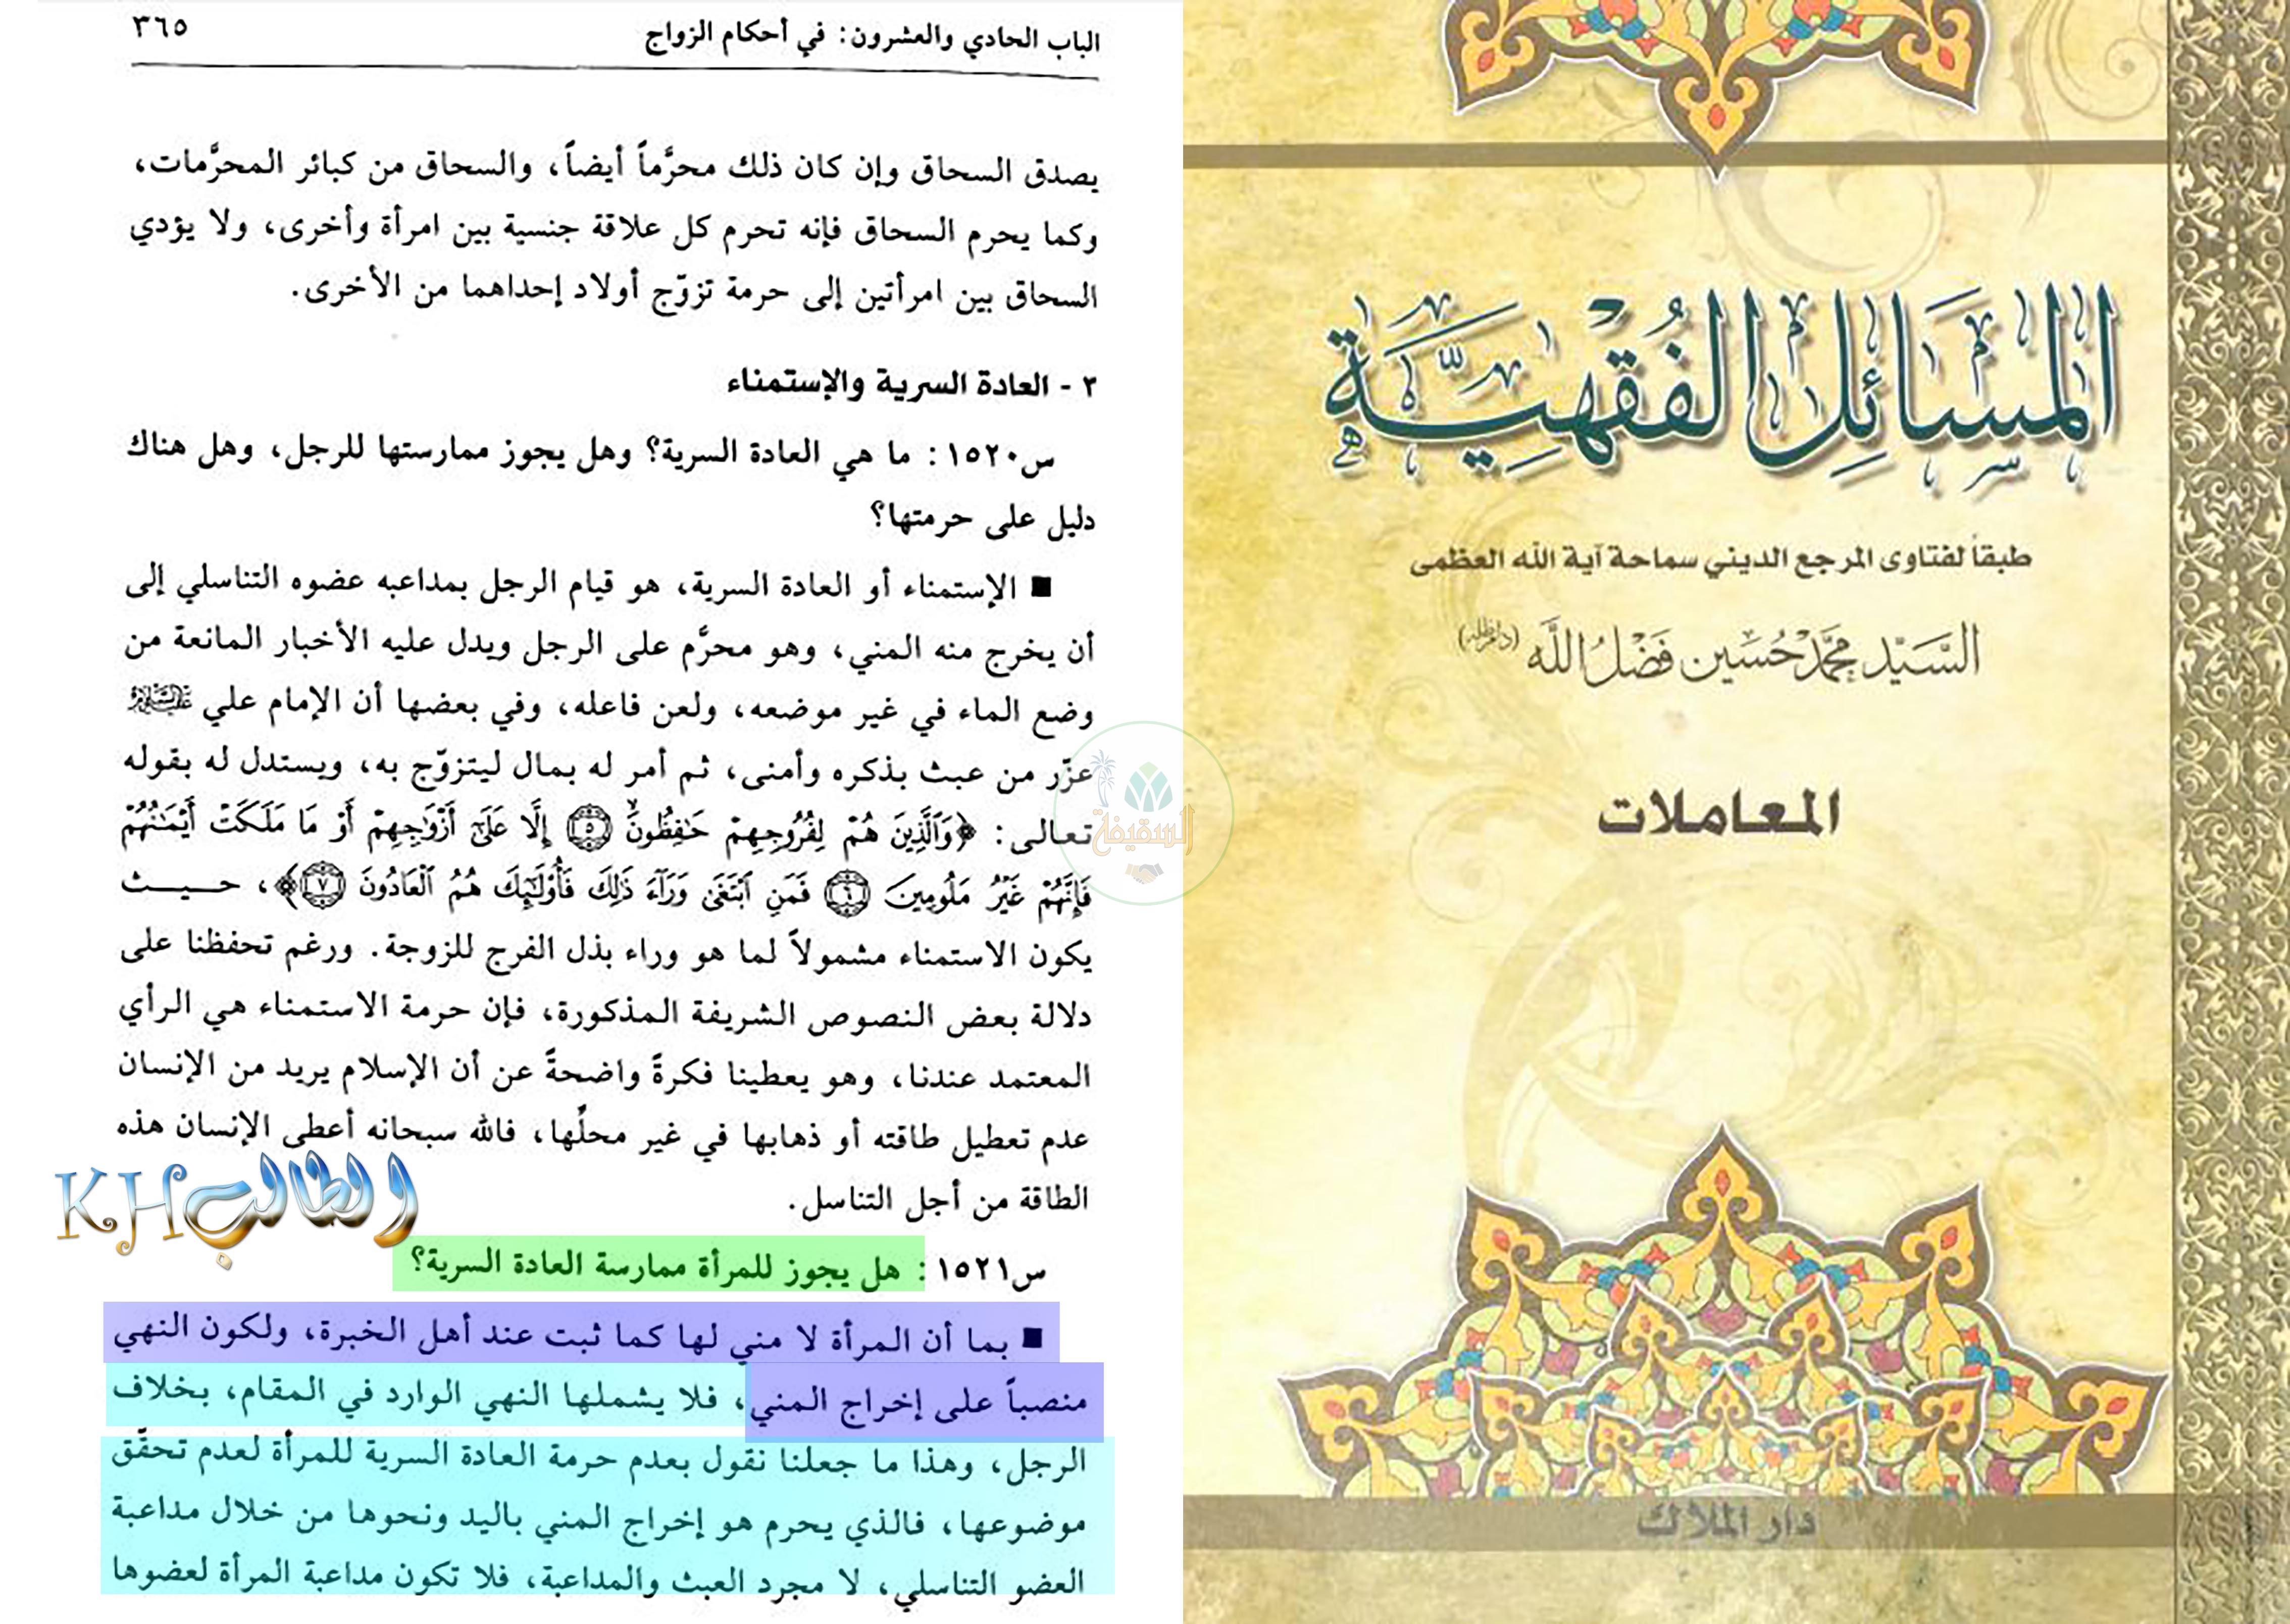 الباب الحادي والعشرون: في أحكام الزواج ٣٦٥
يصدق السحاق وإن كان ذلك محرَّماً أيضاً، والسحاق من كبائر المحرَّمات،
وكما يحرم السحاق فإنه تحرم كل علاقة جنسية بين امرأة وأخرى، ولا يؤدي
السحاق بين امرأتين إلى حرمة تزوّج أولاد إحداهما من الأخرى.
٣ - العادة السرية والإستمناء
س١٥٢٠: ما هي العادة السرية؟ وهل يجوز ممارستها للرجل، وهل هناك
دليل على حرمتها؟
■ الإستمناء أو العادة السرية، هو قيام الرجل بمداعبه عضوه التناسلي إلى
أن يخرج منه المني، وهو محرَّم على الرجل ويدل عليه الأخبار المانعة من
وضع الماء في غير موضعه، ولعن فاعله، وفي بعضها أن الإمام علي عليه السلام
عزّر من عبث بذكره وأمنى، ثم أمر له بمال ليتزوّج به، ويستدل له بقوله
تعالى: ﴿وَالَّذِينَ هُمْ لِفُرُوجِهِمْ حَافِظُونَ ٥ إِلَّا عَلَىٰ أَزْوَاجِهِمْ أَوْ مَا مَلَكَتْ أَيْمَانُهُمْ
فَإِنَّهُمْ غَيْرُ مَلُومِينَ ٦ فَمَنِ ابْتَغَىٰ وَرَاءَ ذَلِكَ فَأُولَٰئِكَ هُمُ الْعَادُونَ ٧﴾، حيث
يكون الاستمناء مشمولاً لما هو وراء بذل الفرج للزوجة. ورغم تحفظنا على
دلالة بعض النصوص الشريفة المذكورة، فإن حرمة الاستمناء هي الرأي
المعتمد عندنا، وهو يعطينا فكرةً واضحةً عن أن الإسلام يريد من الإنسان
عدم تعطيل طاقته أو ذهابها في غير محلِّها، فالله سبحانه أعطى الإنسان هذه
الطاقة من أجل التناسل.
الطالب KH
س١٥٢١: هل يجوز للمرأة ممارسة العادة السرية؟
■ بما أن المرأة لا مني لها كما ثبت عند أهل الخبرة، ولكون النهي
منصباً على إخراج المني، فلا يشملها النهي الوارد في المقام، بخلاف
الرجل، وهذا ما جعلنا نقول بعدم حرمة العادة السرية للمرأة لعدم تحقّق
موضوعها، فالذي يحرم هو إخراج المني باليد ونحوها من خلال مداعبة
العضو التناسلي، لا مجرد العبث والمداعبة، فلا تكون مداعبة المرأة لعضوها
السقيفة
المسائل الفقهية
طبقاً لفتاوى المرجع الديني سماحة آية الله العظمى
السيد محمد حسين فضل الله (دام ظله)
المعاملات
دار الملاك